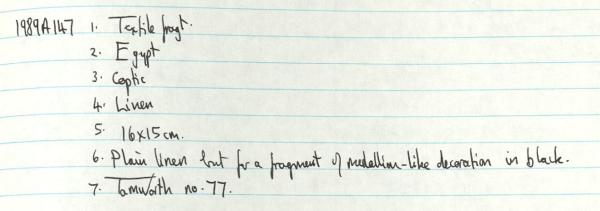 1989A147 1. Textile fragt.
2. Egypt
3. Coptic
4. Linen
5. 16x15cm.
6. Plain linen but for a fragment of medallion-like decoration in black.
7. Tamworth no. 77.